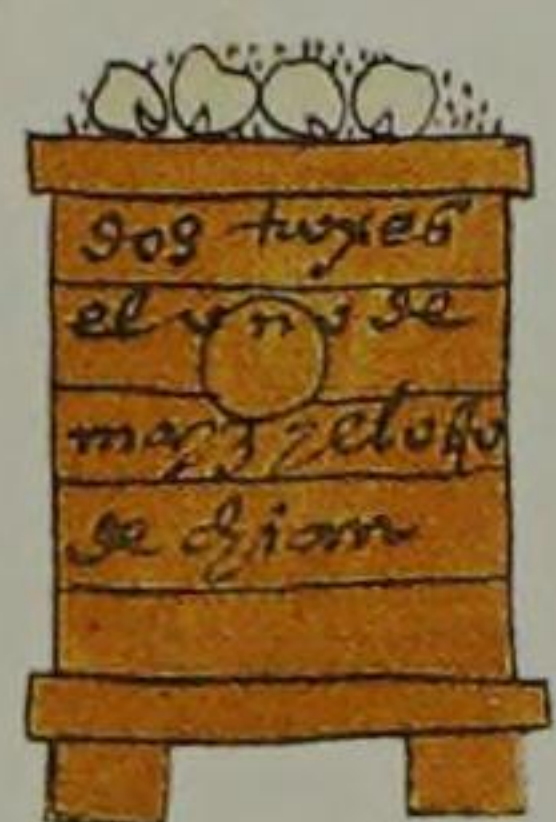 dos truxes
el uno de
mayz y el otro
de chian